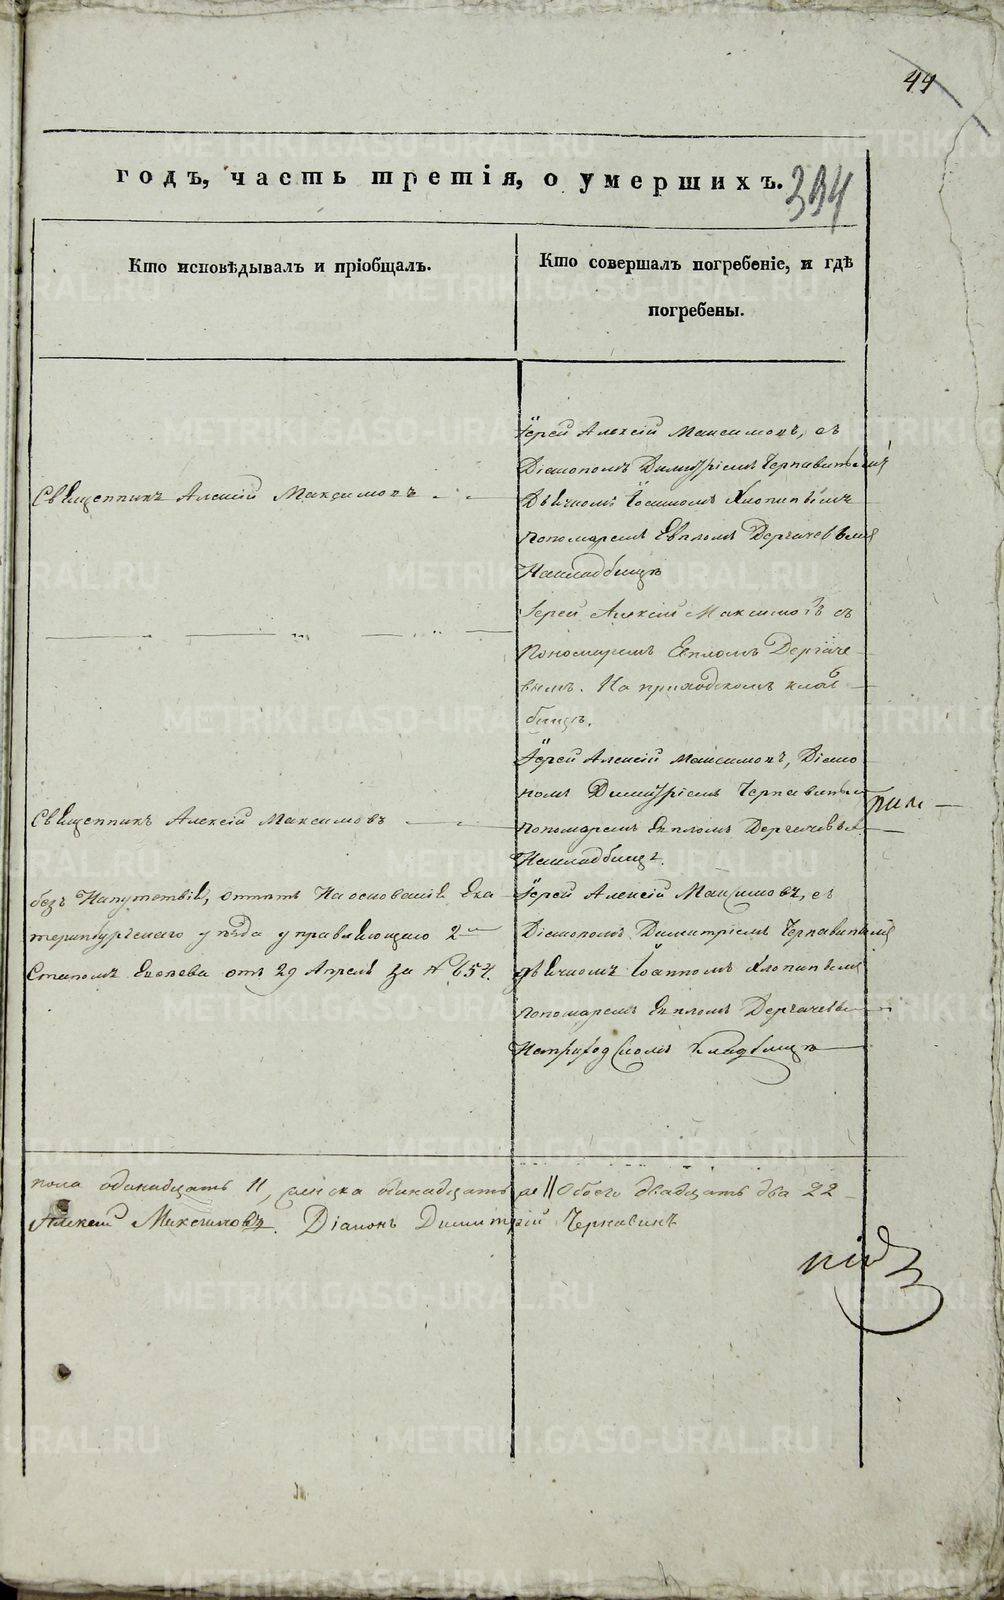 44
годъ, часть третія, о умершихъ. 394
Кто исповѣдывалъ и пріобщалъ.
Кто совершалъ погребеніе, и гдѣ
погребены.
Священникъ Алексій Максимовъ
Іерей Алексій Максимовъ, съ
Діакономъ Димитріемъ Чернавинымъ
Дьячкомъ Іоанномъ Хлопинымъ
пономаремъ Евпломъ Дергачевымъ
На кладбищѣ
Іерей Алексій Максимовъ съ
Пономаремъ Евпломъ Дергаче-
вымъ. На приходскомъ клад-
бищѣ.
Священникъ Алексій Максимовъ
Іерей Алексій Максимовъ, Діако
номъ Димитріемъ Чернавины
пономаремъ Евпломъ Дергачевы
На кладбищѣ.
безъ Напутствій, отпетъ На основаніи Ека
теринбургскаго уѣзда управляющаго 2
Станомъ отъ 29 Апреля за № 654.
Іерей Алексій Максимовъ, съ
Діакономъ Димитріемъ Чернавинымъ
дьячкомъ Іоанномъ Хлопинымъ
пономаремъ Евпломъ Дергачевы
На приходскомъ кладбищѣ
пола одинадцать 11, женска одинадцать 11 Обоего двадцать два 22
Алексій Максимовъ. Діаконъ Димитрій Чернавинъ
METRIKI.GASO-URAL.RU